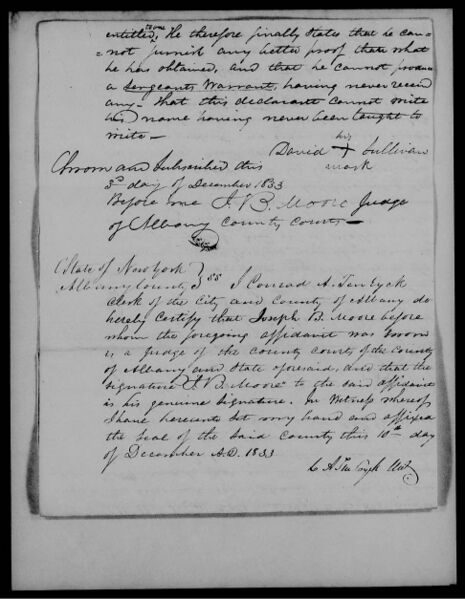 to one
entitled, He therefore finally States that he can-
-not furnish any better proof than what
he has obtained, and that he cannot produce
a Sergeants Warrant, having never received
any - that this declarant cannot write
his name having never been taught to
write -
his
David + Sullivan
mark
Sworn and Subscribed this
3d day of December 1833
Before me J. B. Moore Judge
of Albany County Courts
State of New York
Albany County } ss I Conrad A. Ten Eyck
Clerk of the City and County of Albany do
hereby Certify that Joseph B. Moore before
whom the foregoing affidavit was sworn
is a Judge of the County Courts of the County
of Albany and State aforesaid, and that the
signature J. B. Moore to the said affidavit
is his genuine signature. In Witness whereof
I have hereunto set my hand and affixed
the seal of the said County this 10th day
of December A.D. 1833
C A Ten Eyck Clk